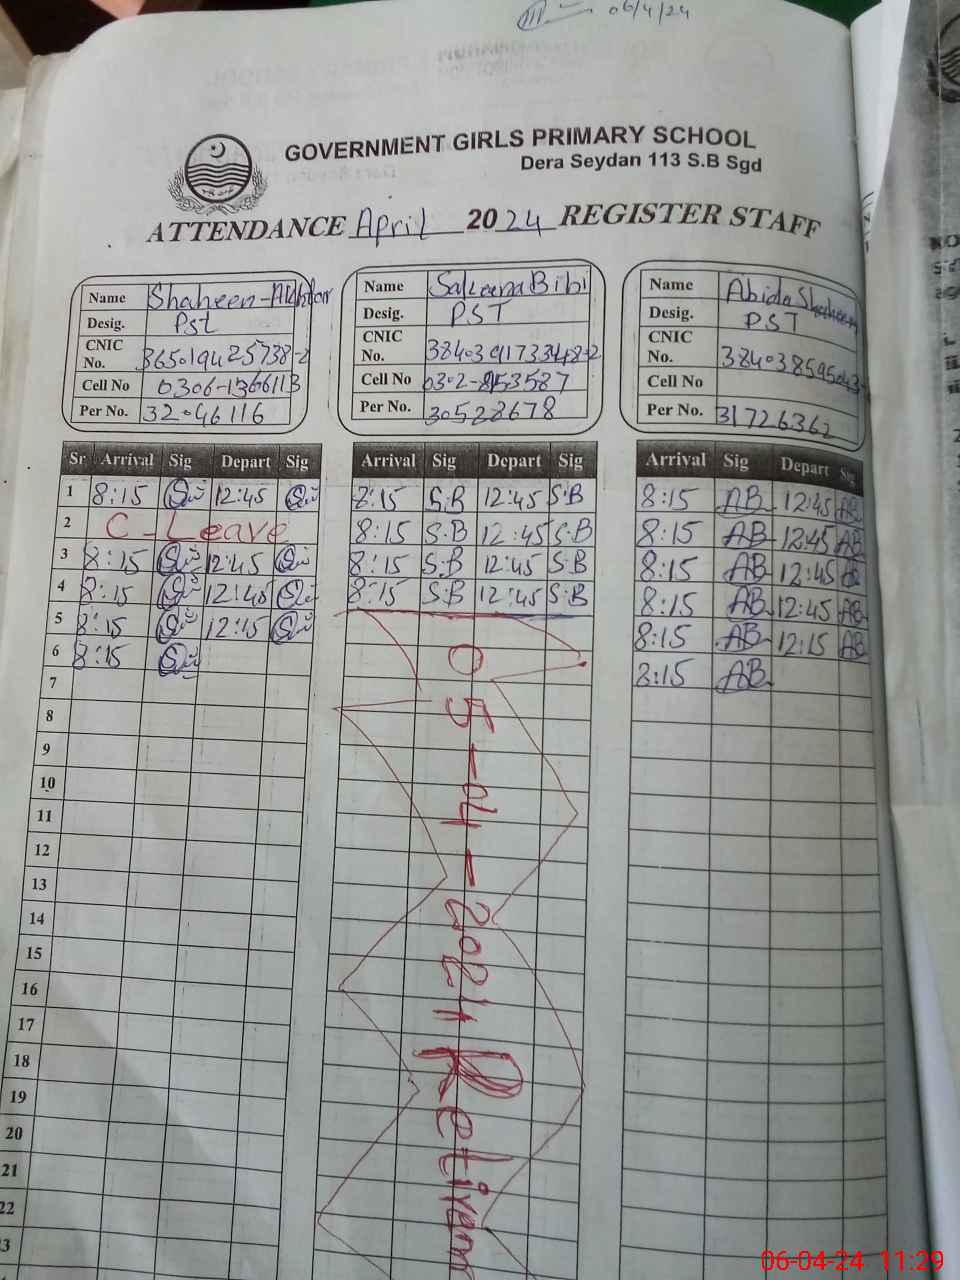 06/4/24
GOVERNMENT GIRLS PRIMARY SCHOOL
Dera Seydan 113 S.B Sgd
ATTENDANCE April 2024 REGISTER STAFF
Name Shaheen-Akhtar
Desig. Pst
CNIC No. 3650194425738-2
Cell No 0306-1366113
Per No. 32046116
Name Sakeena Bibi
Desig. PST
CNIC No. 384039173348-2
Cell No 0302-8153587
Per No. 30528678
Name Abida Shaheen
Desig. PST
CNIC No.
Cell No
Per No. 31726362
Sr Arrival Sig Depart Sig Arrival Sig Depart Sig Arrival Sig Depart Sig
1 8:15 12:45 8:15 S.B 12:45 S.B 8:15 AB 12:45 AB
2 C-Leave 8:15 S.B 12:45 S.B 8:15 AB 12:45 AB
3 8:15 12:45 8:15 S.B 12:45 S.B 8:15 AB 12:45 AB
4 8:15 12:45 8:15 S.B 12:45 S.B 8:15 AB 12:45 AB
5 8:15 12:15 8:15 AB 12:15 AB
6 8:15 8:15 AB
7
8
9
10
11
12
13
14
15
16
17
18
19
20
21
22
3
05-04-2024 Retirem
06-04-24 11:29